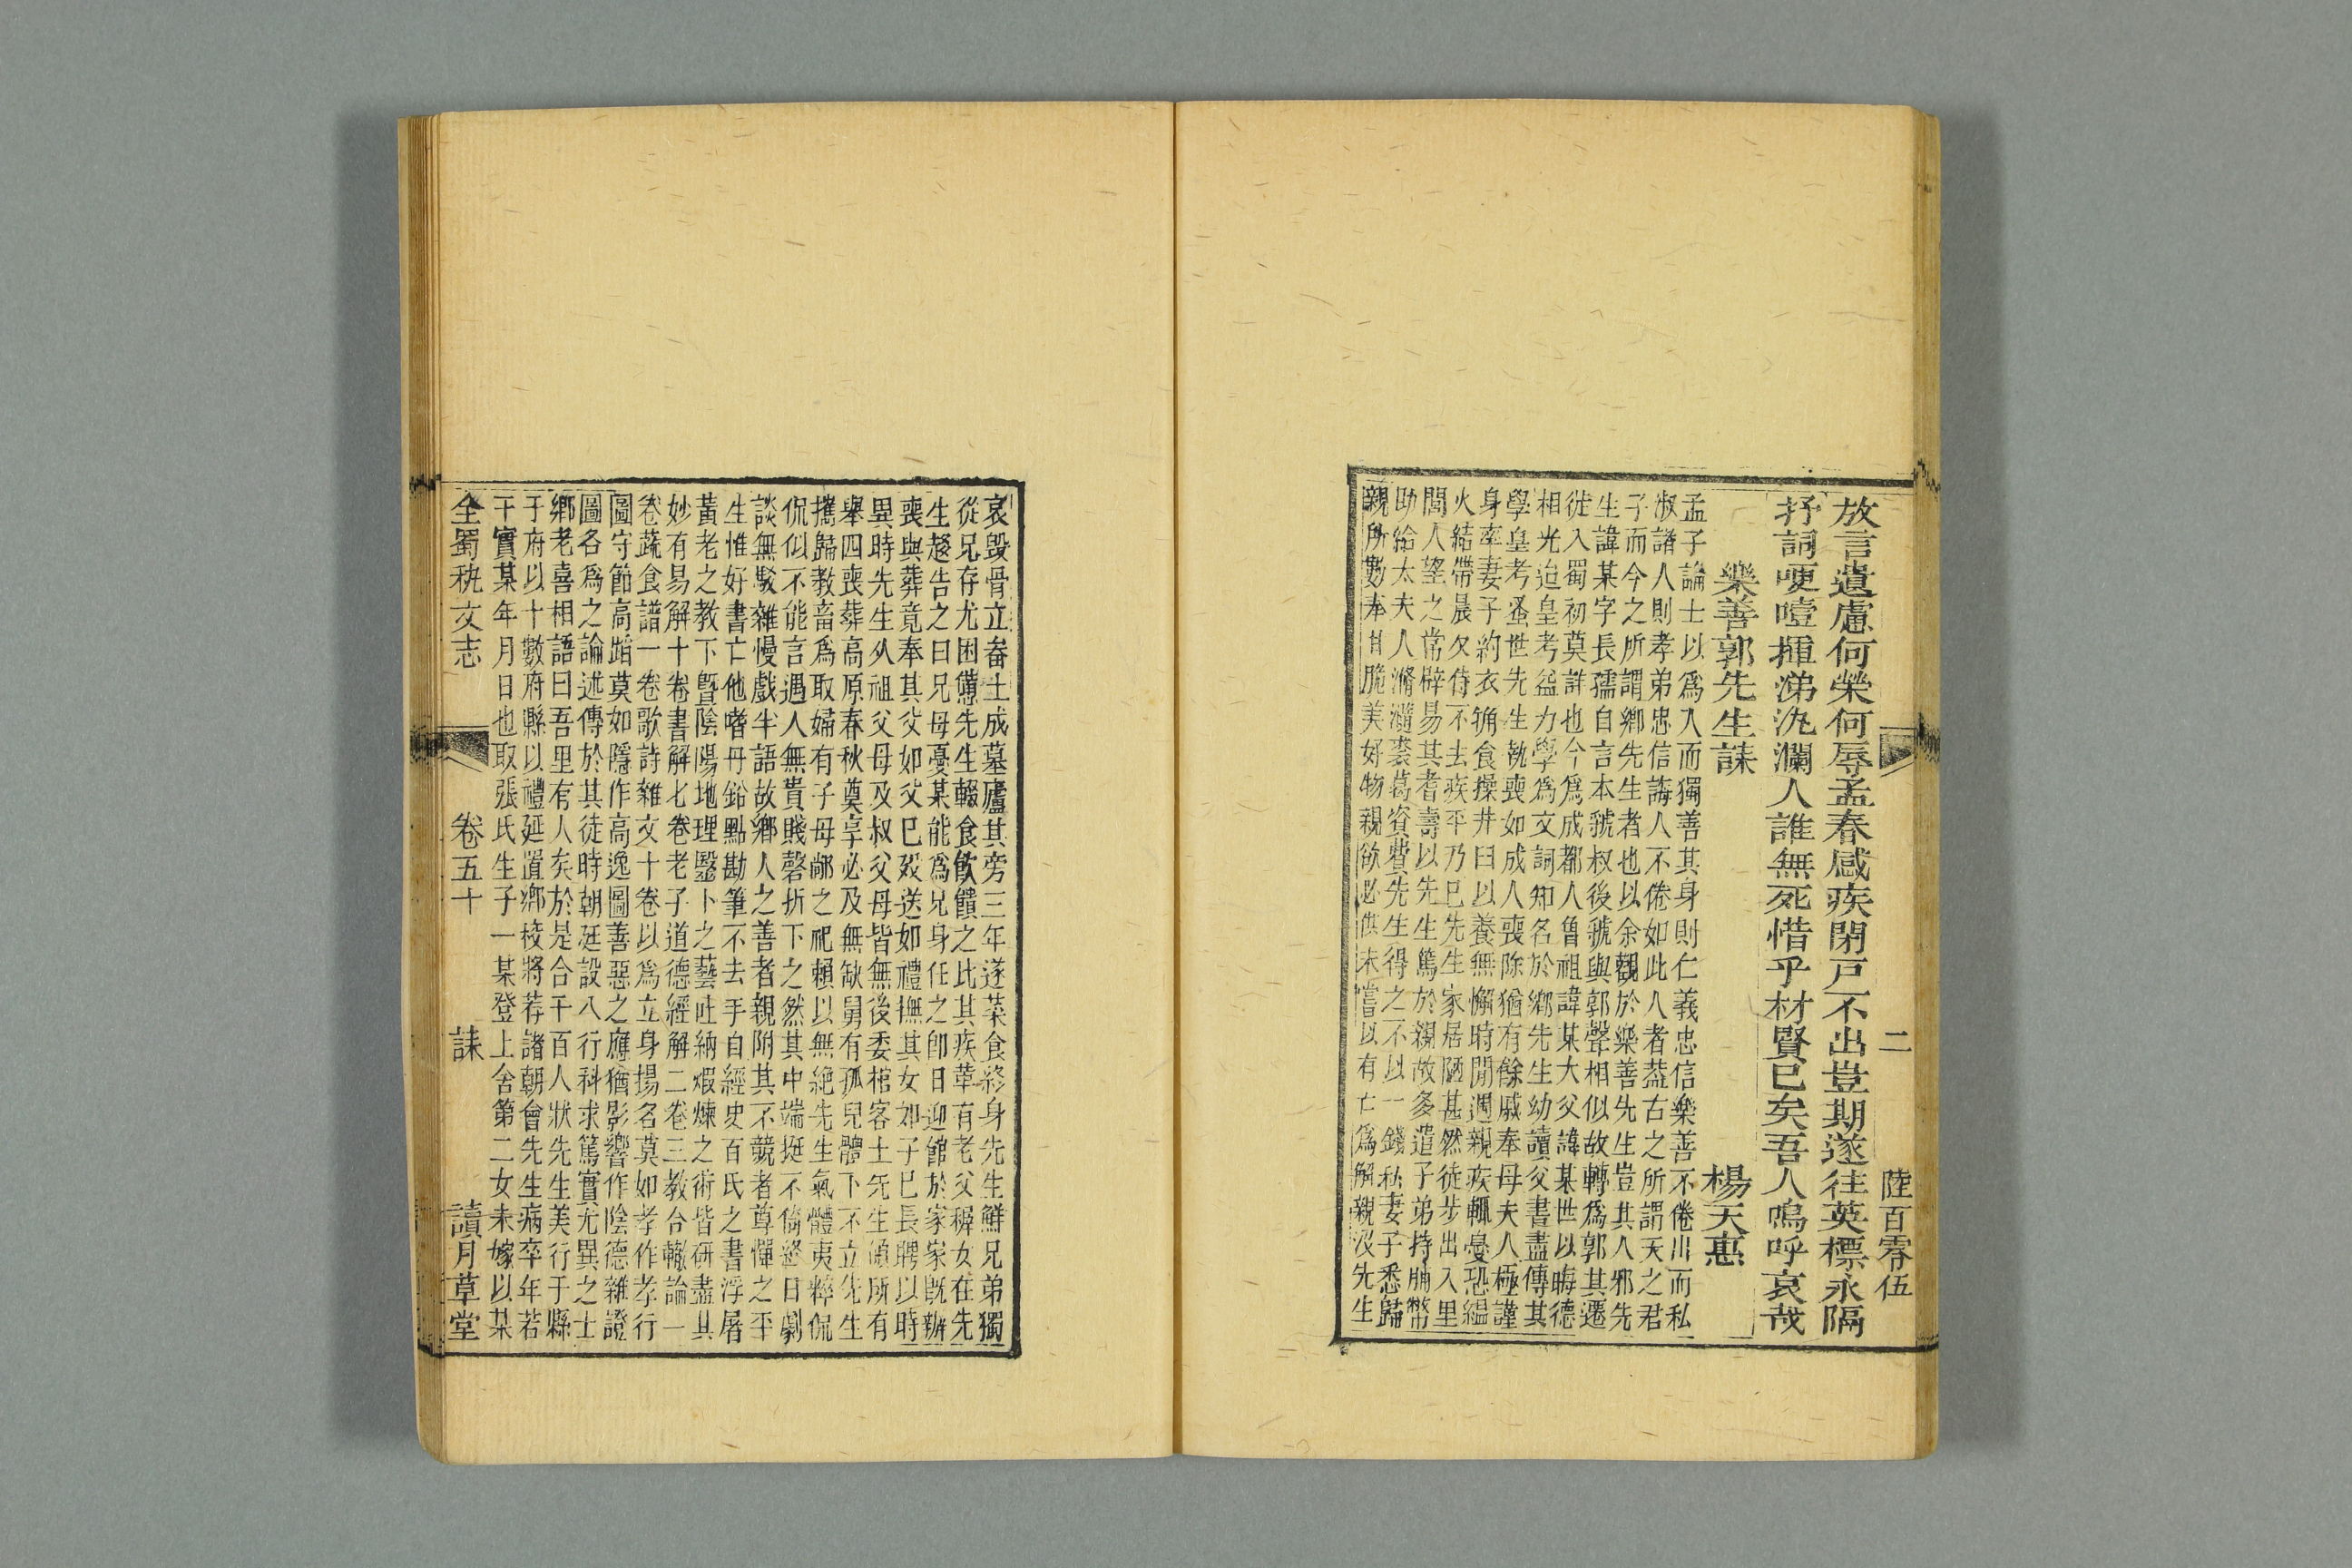 二 陸百零伍
放言遺慮何榮何辱孟春感疾閉戸不出豈期遂往英標永隔
抒詞哽噎揮涕汍瀾人誰無死惜乎材賢已矣吾人嗚呼哀哉
樂善郭先生誄 楊天惠
孟子論士以爲人而獨善其身則仁義忠信樂善不倦出而私
淑諸人則孝弟忠信誨人不倦如此人者葢古之所謂天之君
子而今之所謂鄉先生者也以余觀於樂善先生豈其人邪先
生諱某字長孺自言本虢叔後虢與郭聲相似故轉爲郭其遷
徙入蜀初莫詳也今爲成都人魯祖諱某大父諱某世以晦德
相光迨皇考益力學爲文詞知名於鄉先生幼讀父書盡傳其
學皇考蚤世先生執喪如成人喪除猶有餘戚奉母夫人極謹
身率妻子約衣觕食操井臼以養無懈時閒遇親疾輒憂恐縕
火結帶晨夕侍不去疾平乃已先生家居陋甚然徒步出入里
閭人望之常辟易其耆壽以先生篤於親故多遣子弟持脯幣
助給太夫人滫瀡裘葛資費先生得之不以一錢私妻子悉歸
親所數奉甘脆美好物親欲必供未嘗以有亡爲解親沒先生
哀毁骨立畚土成墓廬其旁三年遂菜食終身先生鮮兄弟獨
從兄存尤困憊先生輟食飲饋之比其疾革有老父穉女在先
生趨告之曰兄母憂某能爲兄身任之卽日迎館於家家旣辦
喪與葬竟奉其父如父已歿送如禮撫其女如子已長聘以時
異時先生从祖父母及叔父母皆無後委棺客土先生傾所有
舉四喪葬高原春秋奠享必及無缺舅有孤兒體下不立先生
攜歸教畜爲取婦有子母鄰之祀賴以無絶先生氣體夷粹侃
侃似不能言遇人無貴賤磬折下之然其中端挺不倚終日劇
談無駁雜慢戲半語故鄉人之善者親附其不競者尊憚之平
生惟好書亡他嗜丹鉛點勘筆不去手自經史百氏之書浮屠
黃老之教下曁陰陽地理毉卜之藝吐納煆煉之術皆研盡其
妙有易解十卷書解七卷老子道德經解二卷三教合轍論一
卷蔬食譜一卷歌詩雜文十卷以爲立身揚名莫如孝作孝行
圖守節高蹈莫如隱作高逸圖善惡之應猶影響作陰德雜證
圖各爲之論述傳於其徒時朝廷設八行科求篤實尤異之士
鄉老喜相語曰吾里有人矣於是合千百人狀先生美行于縣
于府以十數府縣以禮延置鄉校將荐諸朝會先生病卒年若
干實某年月日也取張氏生子一某登上舍第二女未嫁以某
全蜀秇文志 卷五十 誄 讀月草堂